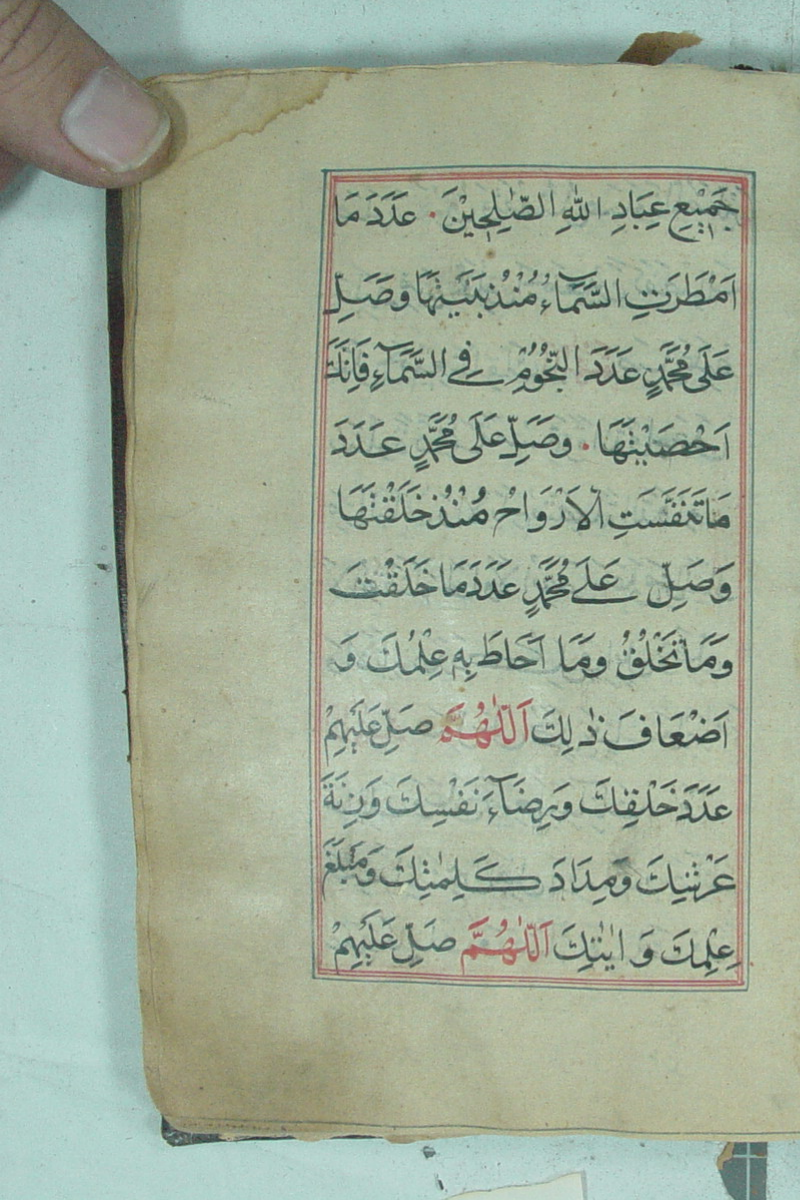 جَمِيْعِ عِبَادِ اللهِ الصّٰلِحِيْنَ. عَدَدَ مَا
اَمْطَرَتِ السَّمَاءُ مُنْذُ بَنَيْتَهَا وَصَلِّ
عَلٰى مُحَمَّدٍ عَدَدَ النُّجُوْمِ فِے السَّمَآءِ فَاِنَّكَ
اَحْصَيْتَهَا. وصَلِّ عَلَى مُحَمَّدٍ عَدَدَ
مَا تَنَفَّسَتِ الْاَرْوَاحُ مُنْذُ خَلَقْتَهَا
وَصَلِّ عَلَے مُحَمَّدٍ عَدَدَ مَا خَلَقْتَ
وَمَا تَخْلُقُ وَمَا اَحَاطَ بِهٖ عِلْمُكَ وَ
اَضْعَافَ ذٰلِكَ اَللّٰهُمَّ صَلِّ عَلَيْهِمْ
عَدَدَ خَلْقِكَ وَرِضَآءَ نَفْسِكَ وَزِنَةَ
عَرْشِكَ وَمِدَادَ كَلِمٰتِكَ وَمَبْلَغَ
عِلْمِكَ وَ اٰيٰتِكَ اَللّٰهُمَّ صَلِّ عَلَيْهِمْ